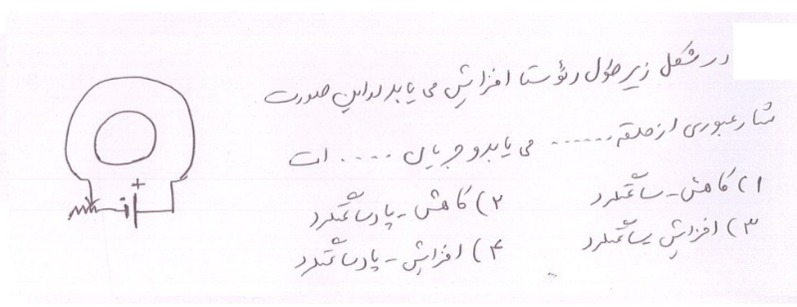 در شکل زیر طول رئوستا افزایش می یابد در این صورت
شار عبوری از حلقه ...... می یابد و جریان .... است
۱) کاهش - ساعتگرد
۲) کاهش - پادساعتگرد
۳) افزایش - ساعتگرد
۴) افزایش - پادساعتگرد
+